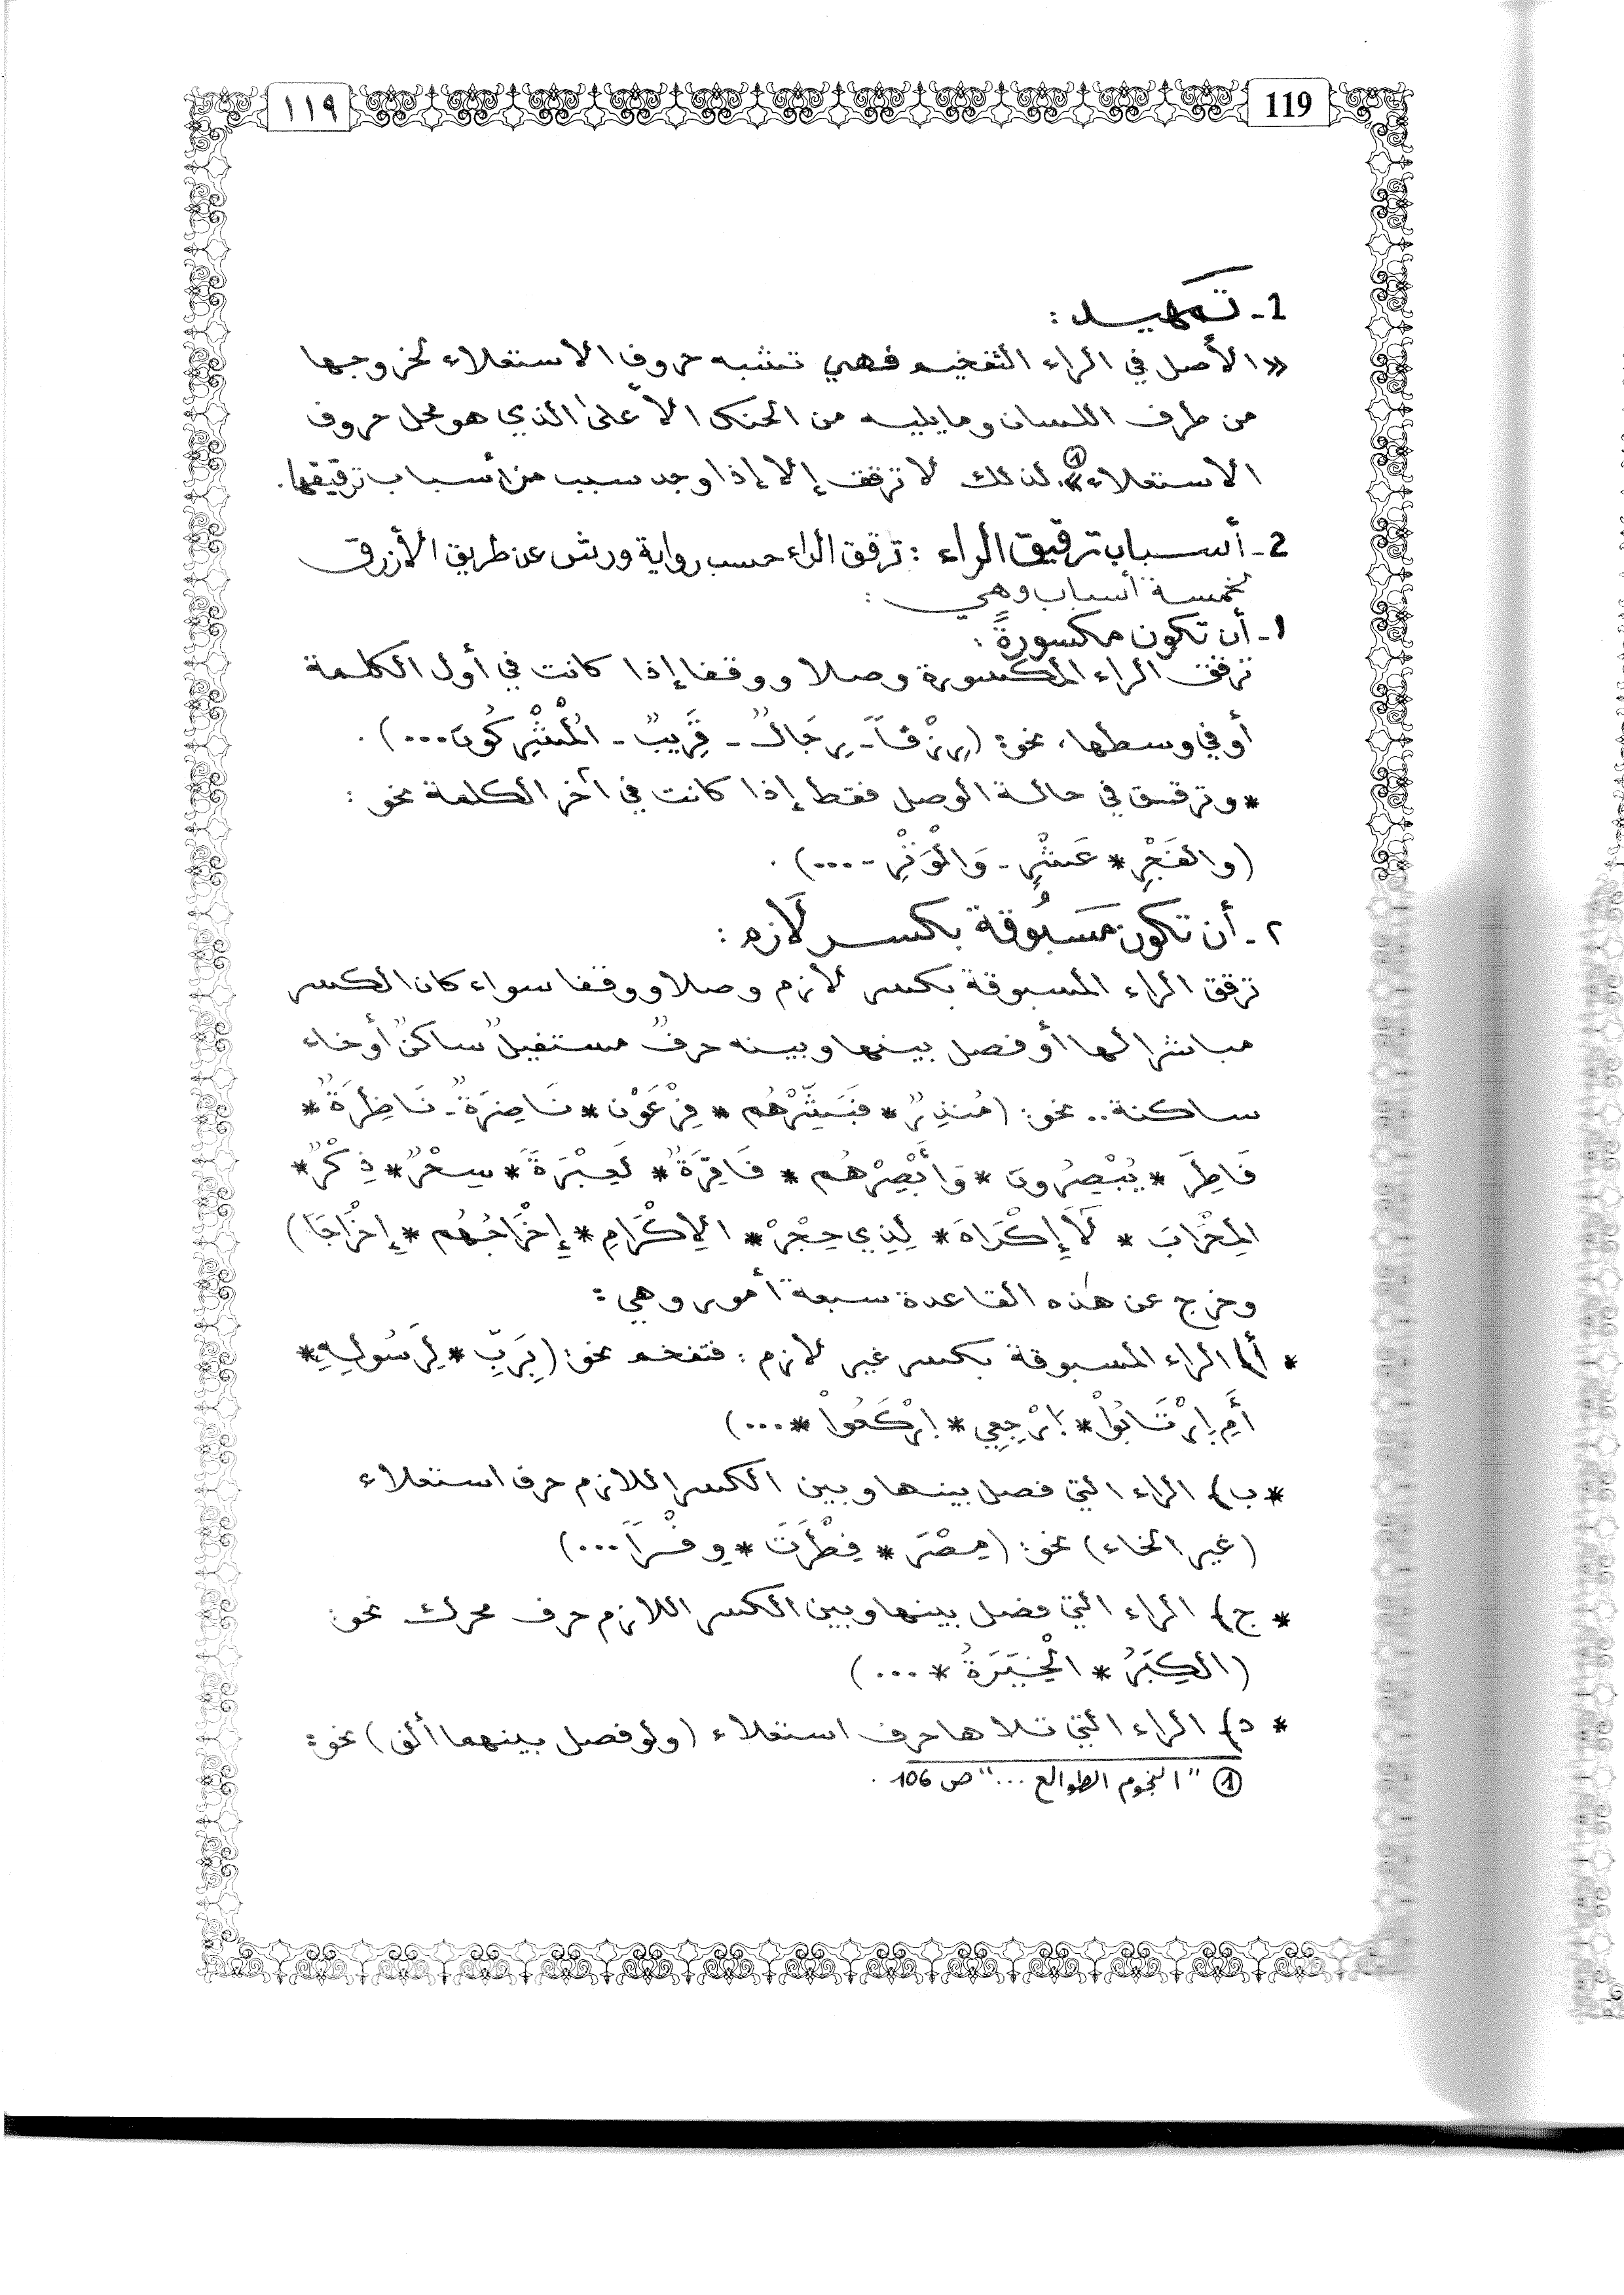 ١١٩
119
1- تمهيد:
«الأصل في الراء التفخيم فهي تشبه حروف الاستعلاء لخروجها
من طرف اللسان وما يليه من الحنك الأعلى الذي هو محل حروف
الاستعلاء»①. لذلك لا ترقق إلا إذا وجد سبب من أسباب ترقيقها.
2- أسباب ترقيق الراء: ترقق الراء حسب رواية ورش عن طريق الأزرق
لخمسة أسباب وهي:
١- أن تكون مكسورةً:
ترقق الراء المكسورة وصلا ووقفا إذا كانت في أول الكلمة
أو في وسطها، نحو: (رِزْقاً - رِجَالٌ - قَرِيبٌ - الْمُشْرِكُونَ...).
* وترقق في حالة الوصل فقط إذا كانت في آخر الكلمة نحو:
(والفَجْرِ * عَشْرٍ - وَالْوَتْرِ - ...).
٢- أن تكون مَسبُوقة بكسر لَازم:
ترقق الراء المسبوقة بكسر لازم وصلا ووقفا سواء كان الكسر
مباشرا لها أو فصل بينها وبينه حرفٌ مستفيلٌ ساكنٌ أو خاء
ساكنة.. نحو: (مُنذِرٌ * فَبَشِّرْهُم * فِرْعَوْن * نَاضِرَةٌ - نَاظِرَةٌ *
فَاطِرَ * يُبْصِرُونَ * وَأَبْصِرْهُم * فَاقِرَةٌ * لَعِبْرَةً * سِحْرٌ * ذِكْرٌ *
المِحْرَابَ * لَا إِكْرَاهَ * لِذِي حِجْرٍ * الإِكْرَامِ * إِخْرَاجُهُم * إِخْرَاجًا)
وخرج عن هذه القاعدة سبعة أمور وهي:
* أ) الراء المسبوقة بكسر غير لازم: فتفخم نحو: (بِرَبِّ * لِرَسُولِهِ *
أَمِ اِرْتَابُواْ * اِرْجِعِي * اِرْكَعُواْ * ...)
* ب) الراء التي فصل بينها وبين الكسر اللازم حرف استعلاء
(غير الخاء) نحو: (مِصْرَ * فِطْرَتَ * وِقْراً...)
* ج) الراء التي فصل بينها وبين الكسر اللازم حرف محرك نحو:
(الكِبَرُ * الْخِيَرَةُ * ...)
* د) الراء التي تلاها حرف استعلاء (ولو فصل بينهما ألف) نحو:
① "النجوم الطوالع ..." ص 106.